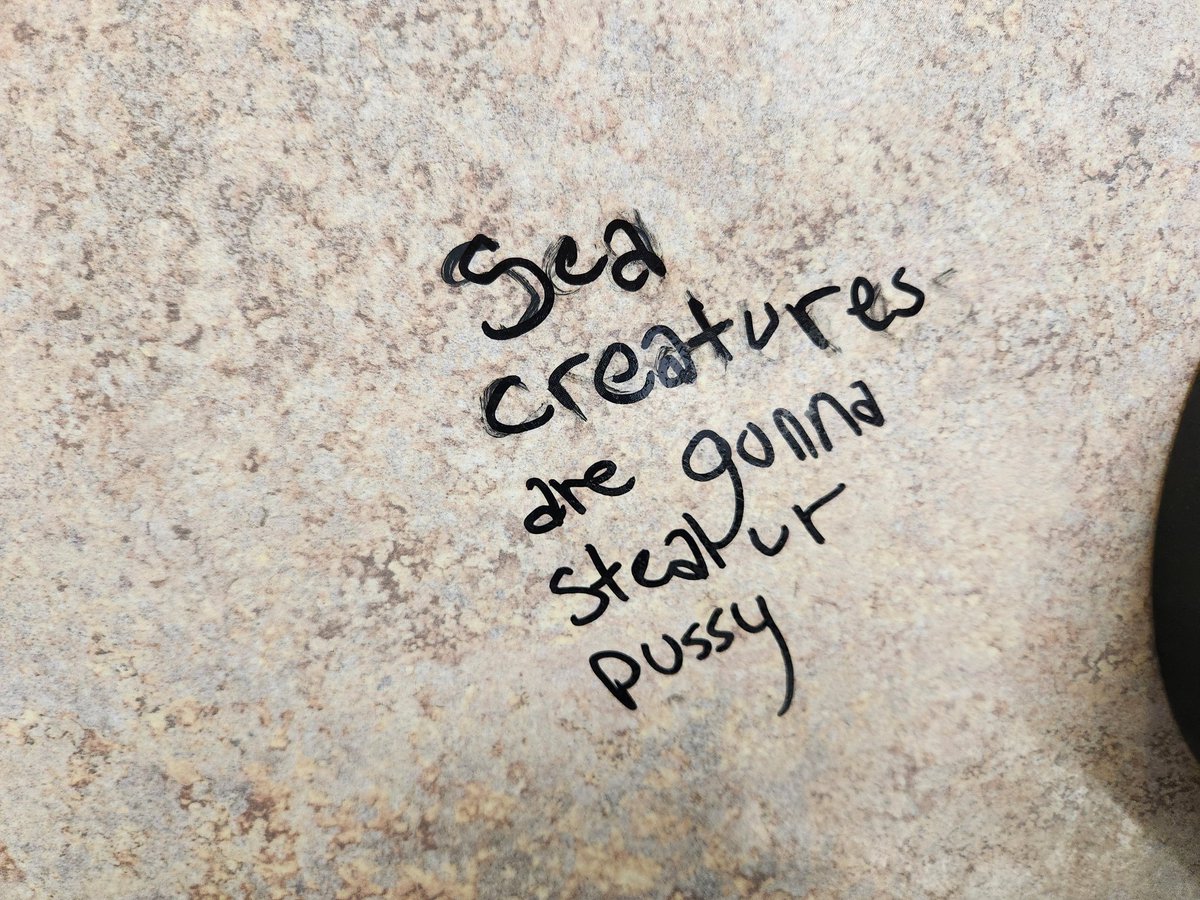 Sea
creatures
are gonna
steal ur
pussy